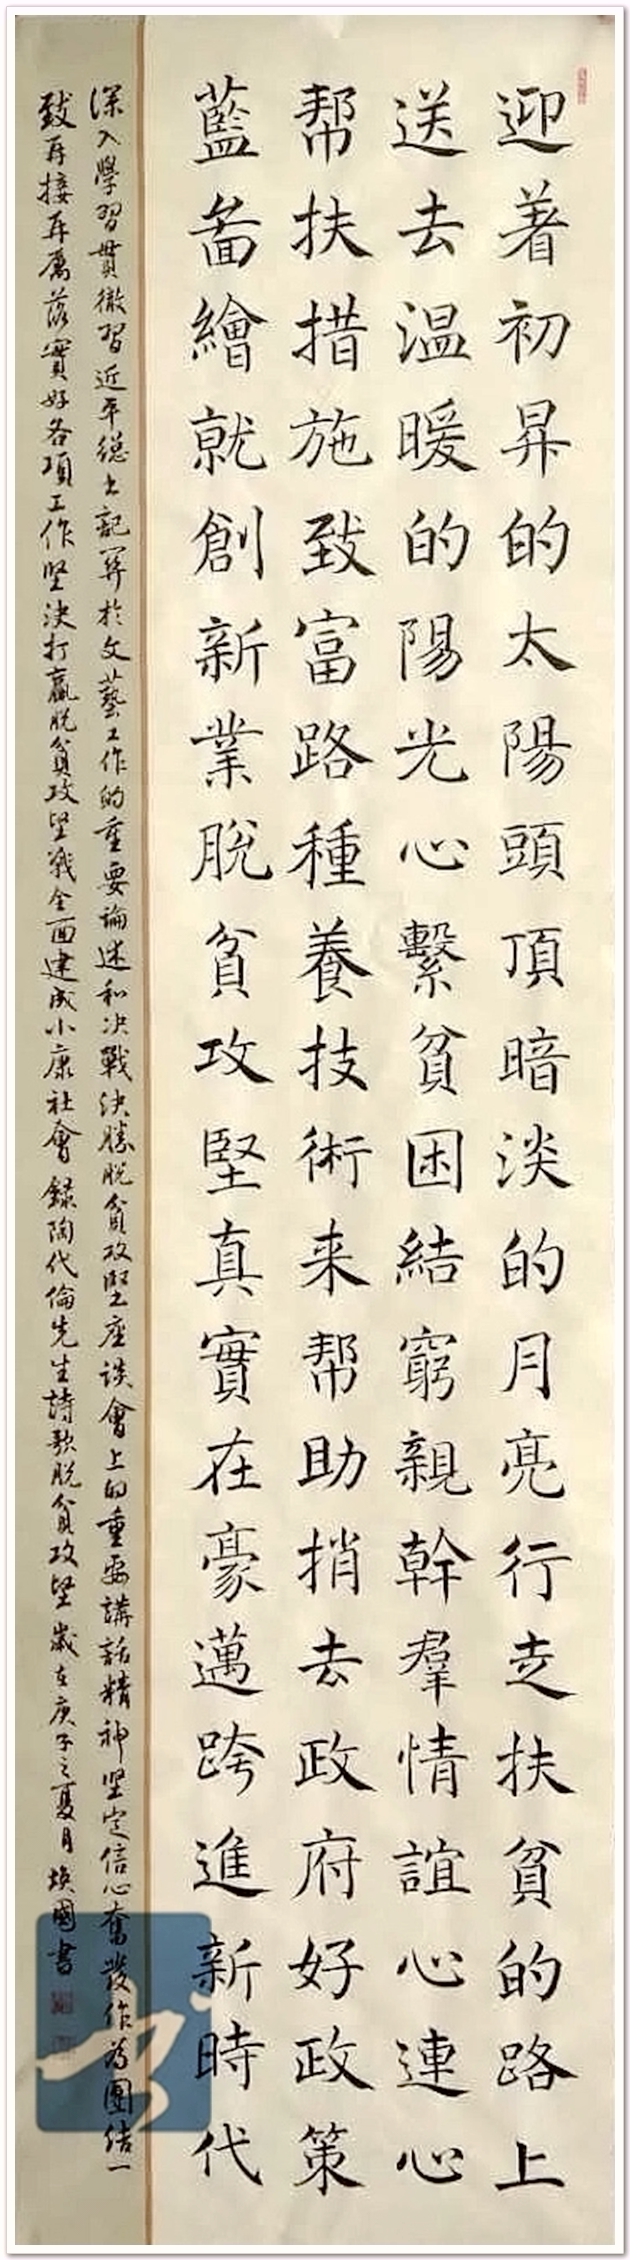 迎着初昇的太陽頭頂暗淡的月亮行走扶貧的路上
送去温暖的陽光心繫貧困結窮親幹羣情誼心連心
帮扶措施致富路種養技術来帮助捎去政府好政策
藍啚繪就創新業脱貧攻堅真實在豪邁跨進新時代
深入學習貫徹習近平總书記関於文藝工作的重要論述和决戰决勝脱貧攻堅座談會上的重要講話精神坚定信心奮發作為團结一
致再接再厲落實好各項工作坚决打贏脱貧攻坚戰全面建成小康社會 録陶代倫先生詩歌脱貧攻坚 歲在庚子之夏月 焕國書